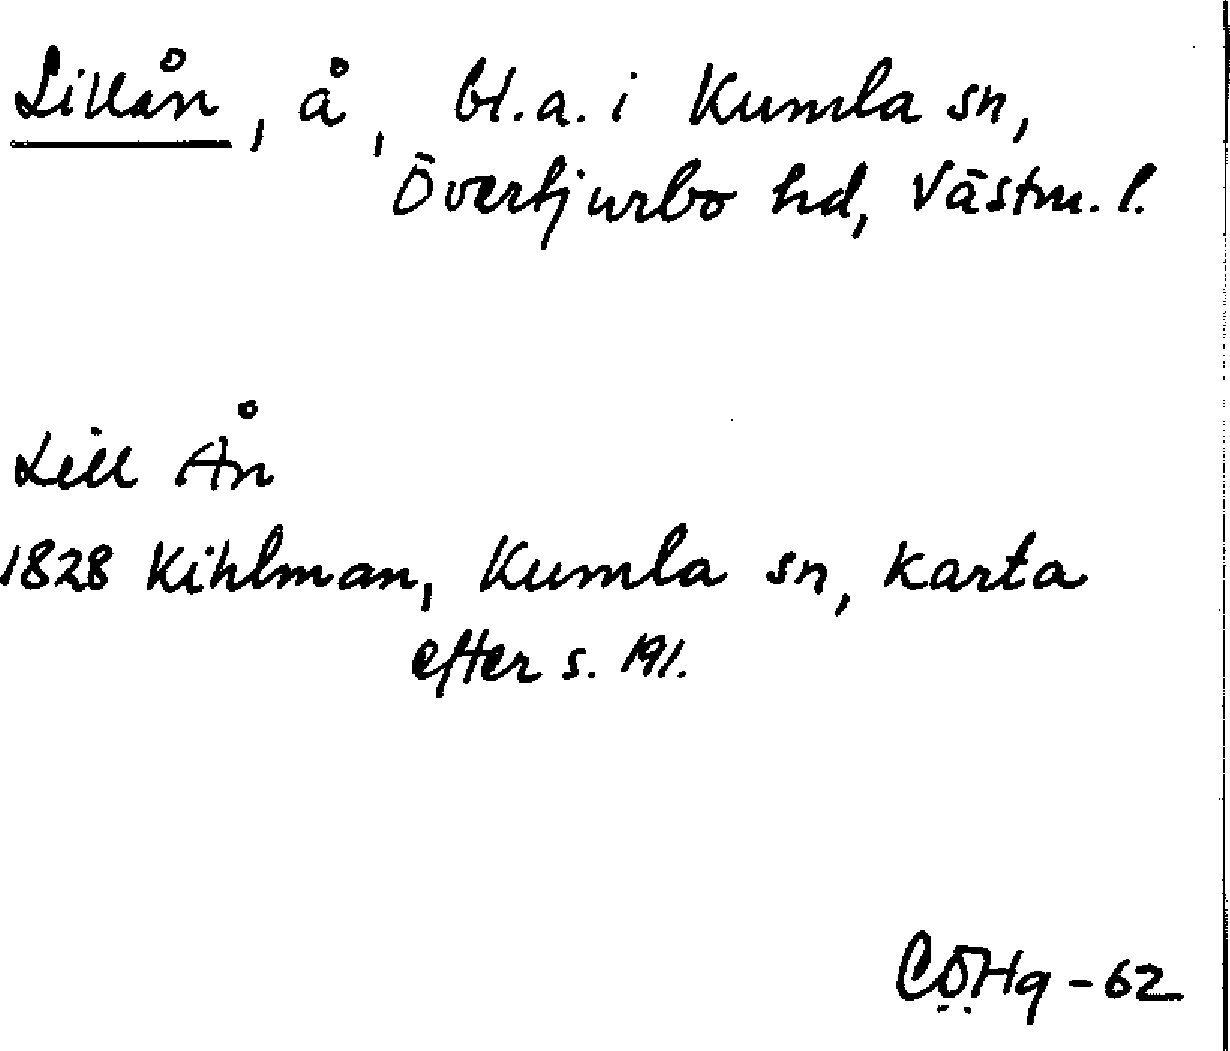 Lillån, å, bl.a. i Kumla sn,
Övertjurbo hd, Västm. l.
Lill Ån
1828 Kihlman, Kumla sn, karta
efter s. 191.
CÖHg - 62